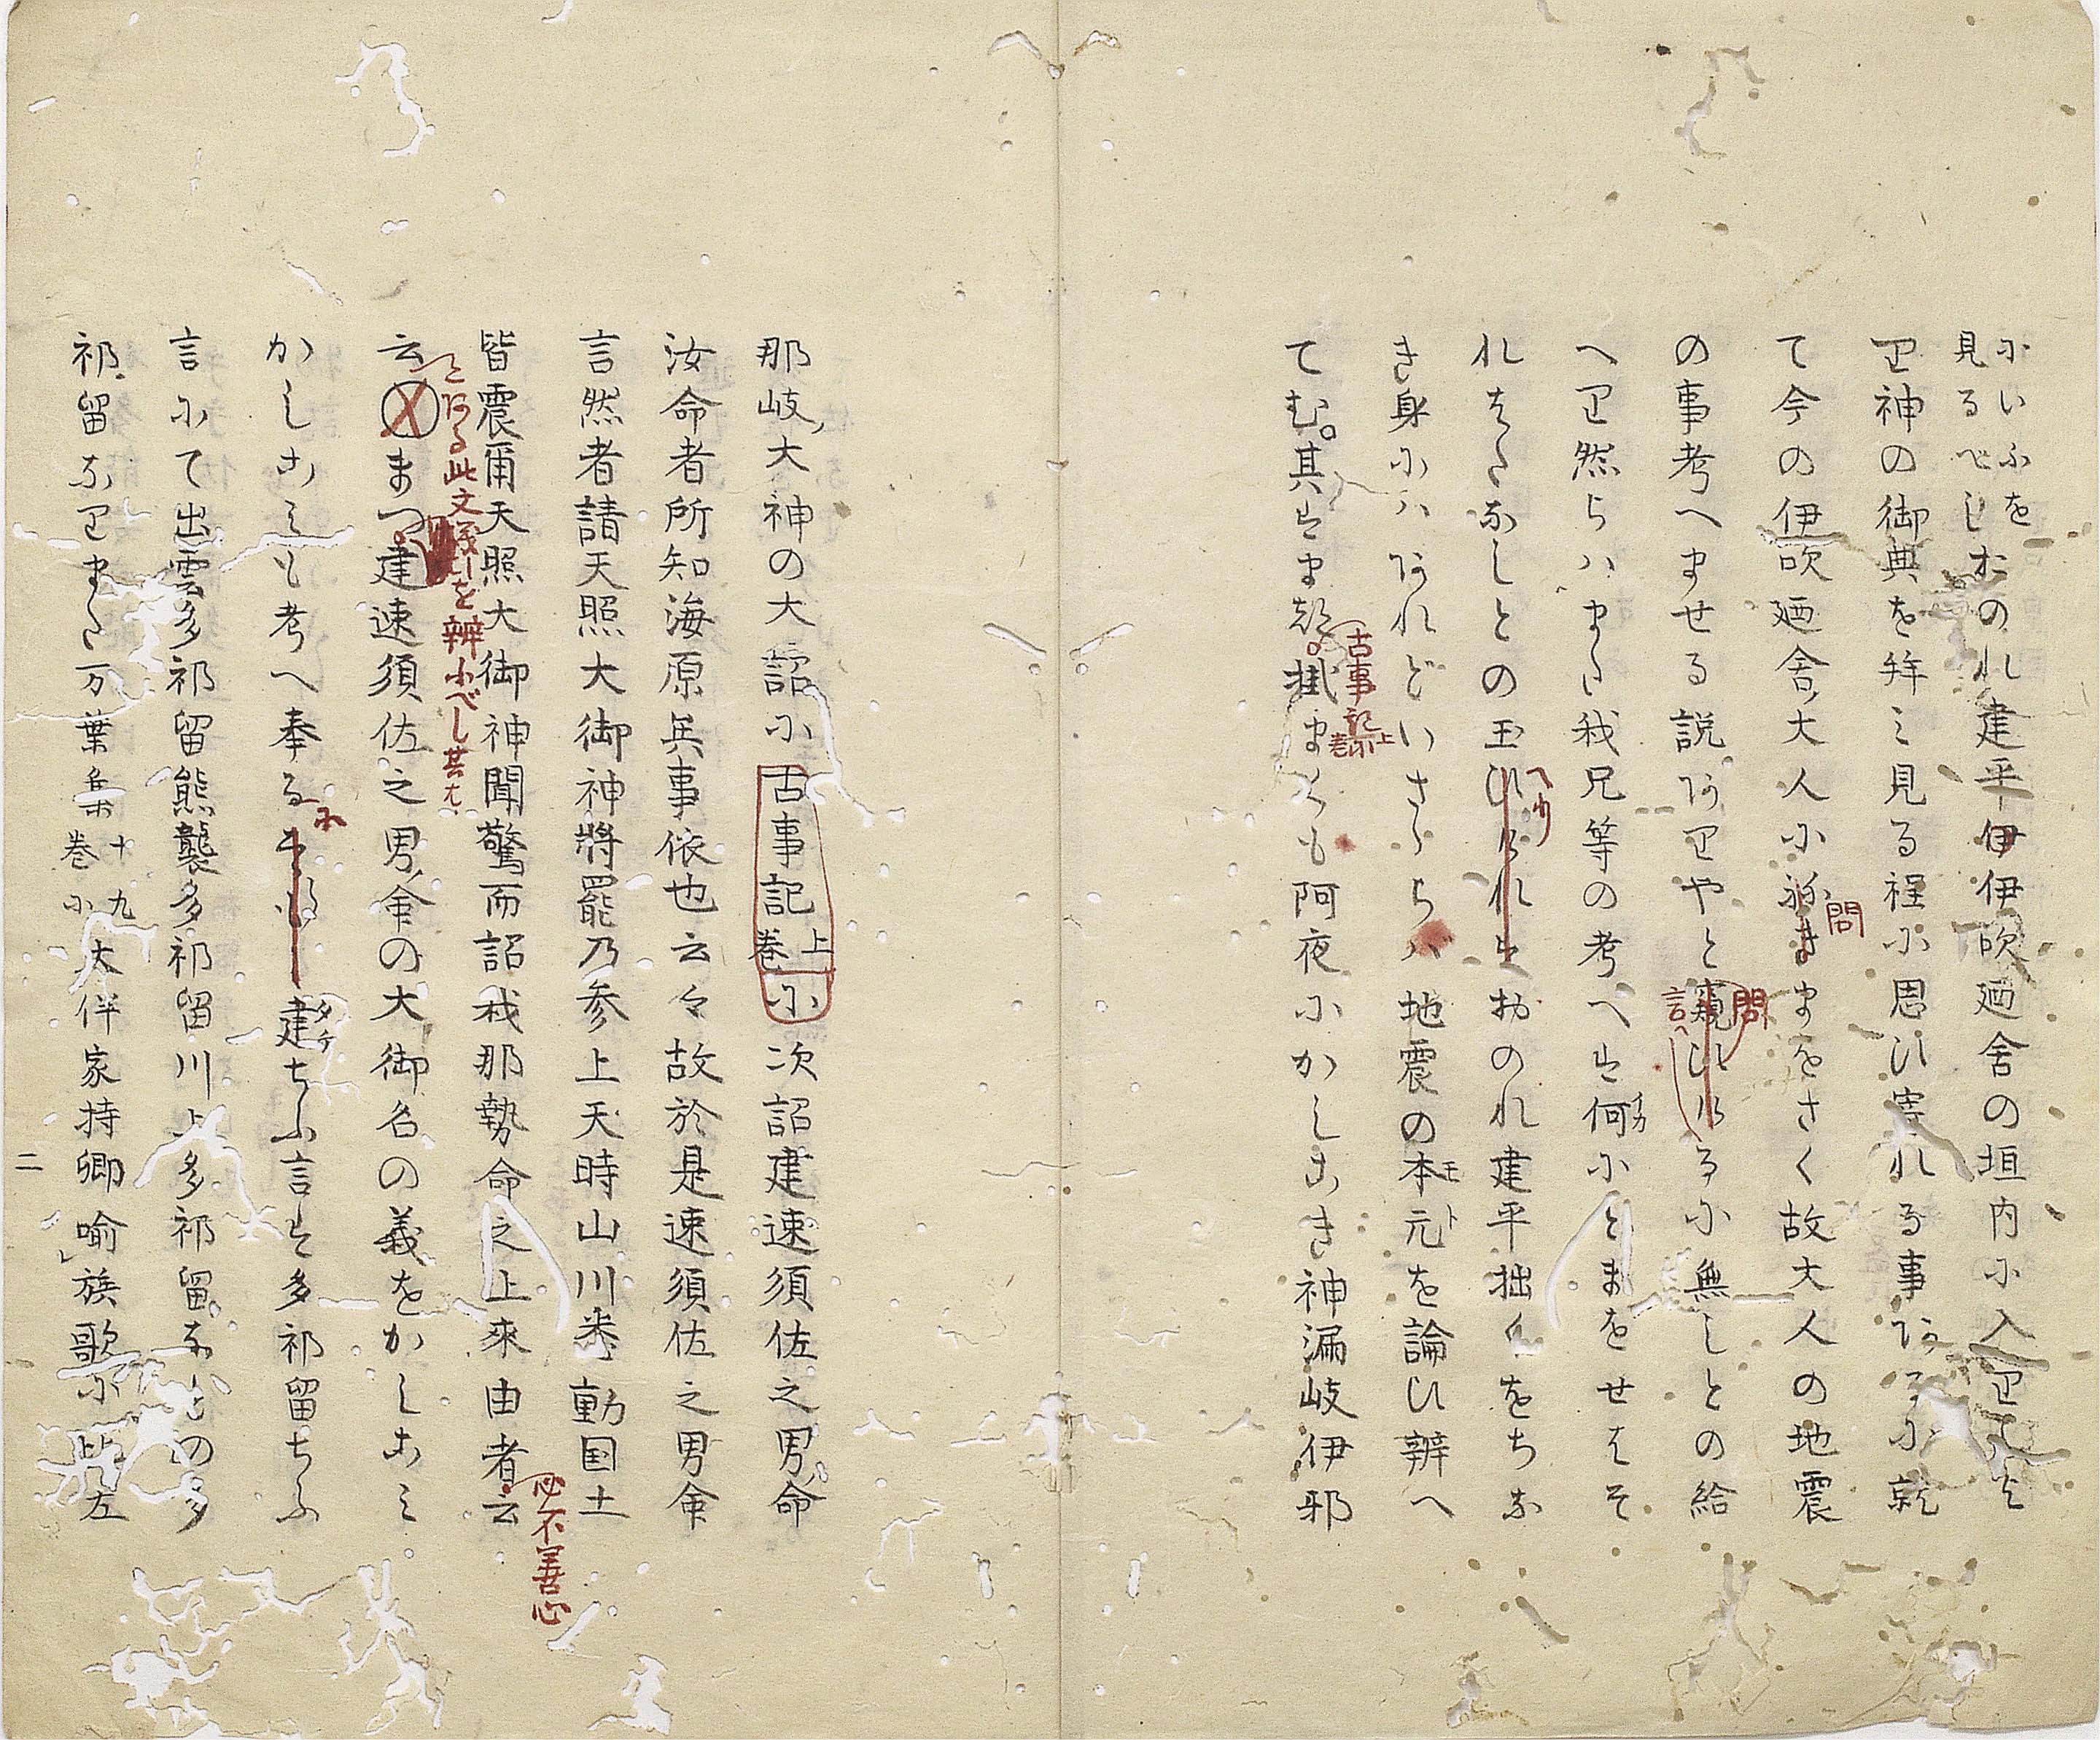 にいふを
見るべしおのれ建平伊伊吹廼舎の垣内に入り
り神の御典を拝み見る程に思ひ寄れる事あるに就
て今の伊吹廼舎大人に問まをさく故大人の地震
の事考へませる説ありやと問るに無しとの給
言へ
へり然らハまた我兄等の考へは何にとまをせはそ
イカ
れはたなしとの玉へり おのれ建平拙くをぢな
き身にハあれどいさゝらバ地震の本元を論ひ辨へ
モト
てむ。其はまづ。掛まくも阿夜にかしこき神漏岐伊邪
古事記上
那岐大神の大詔に古事記上巻に次詔建速須佐之男命
汝命者所知海原矣事依也云々故於是速須佐之男命
言然者請天照大御神將罷乃参上天時山川悉動国土
皆震爾天照大御神聞驚而詔我那勢命之上来由者云
必不善心
とある此文
を辨ふべし其ハ
云まづ建速須佐之男命の大御名の義をかしこみ
かしこみも考へ奉るに建ちふ言は多祁留ちふ
タケ
言にて出雲多祁留熊襲多祁留川上多祁留などの多
祁留なりまた万葉集十九巻に大伴家持卿喩族歌に 左
二